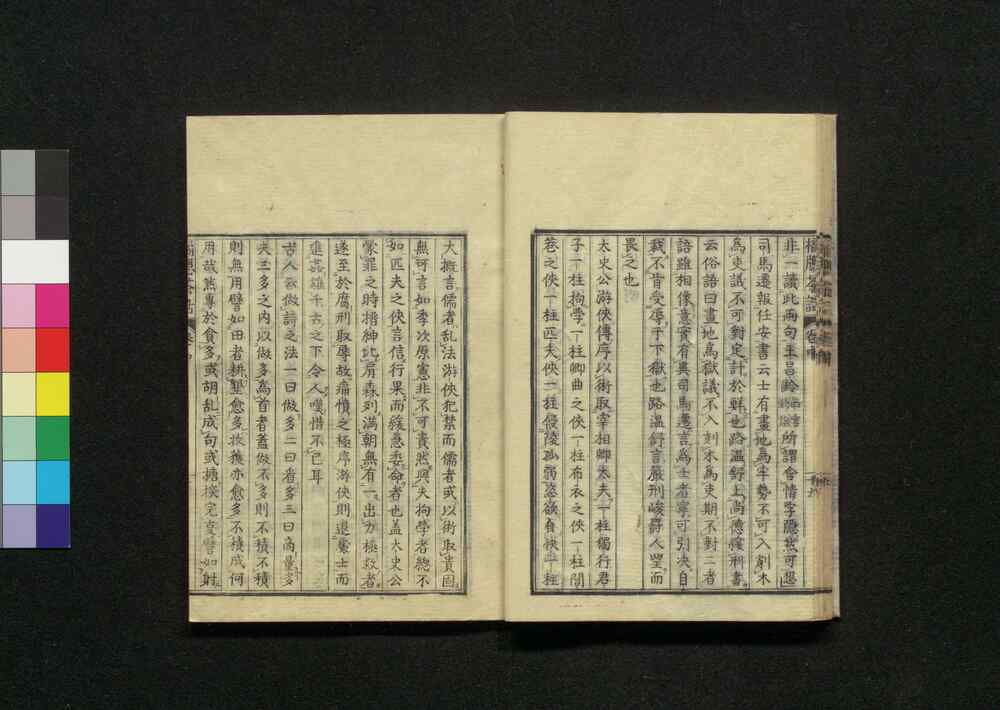 非一讀此兩句王昌齡 所謂含情字隱然可想
司馬遷報任安書云士有畫地爲牢勢不可入削木
爲吏議不可對定計於鮮也路溫舒上尚德緩刑書
云俗語曰畫地爲獄議不入刻木爲吏期不對二者
語雖相像意實有異司馬遷言爲士者寧可引決自
裁不肯受辱于下獄也路溫舒言嚴刑峻罰人望而
畏之也
太史公游俠傳序以術取宰相卿大夫一柱獨行君
子一柱拘學一柱鄉曲之俠一柱布衣之俠一柱閭
巷之俠一柱匹夫俠一柱侵陵孤弱恣欲自快一柱
大槪言儒者乱法游俠犯禁而儒者或以術取貴固
無可言如季次原憲非不可貴然與夫拘學者總不
如匹夫之俠言信行果而緩急委命者也盖太史公
蒙罪之時搢紳比肩森列滿朝無有一出力極救者
遂至於腐刑取辱故痛憤之極序游俠則退處士而
進姦雄千古之下令人嘆惜不已耳
古人 做詩之法一曰做多二曰看多三曰商量多
夫三多之內以做多爲首者蓋做不多則不積不積
則無用譬如田者耕墾愈多收穫亦愈多不積成何
用哉然專於貪多或胡乱成句或搪撲完 譬如射